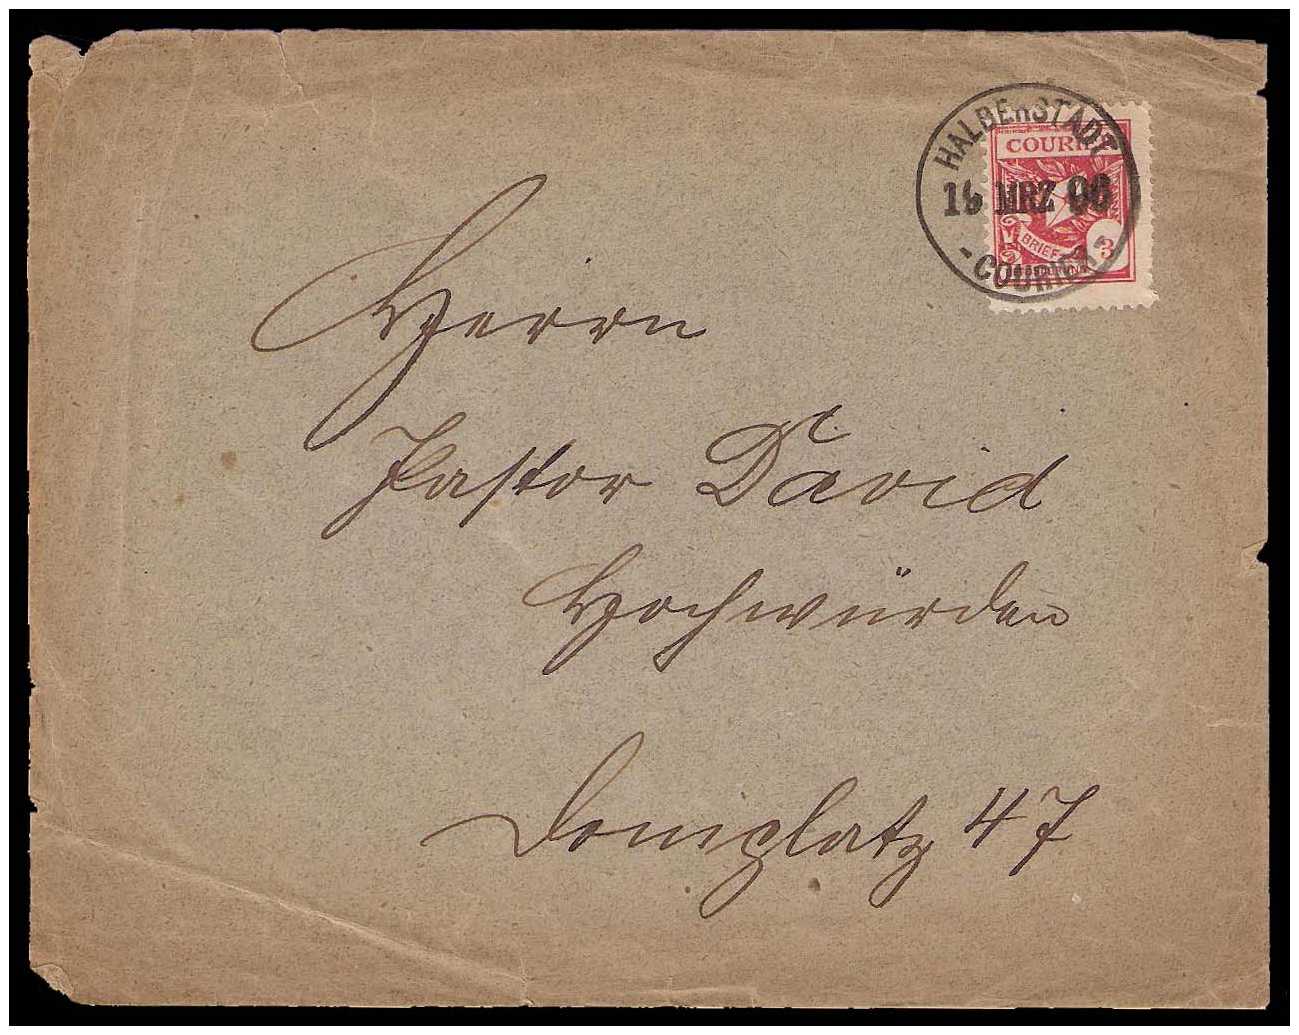 HALBERSTADT
MRZ
- COURIER -
COURI
BRIEF
3
Herrn
Pastor David
Hochwürden
Domplatz 47